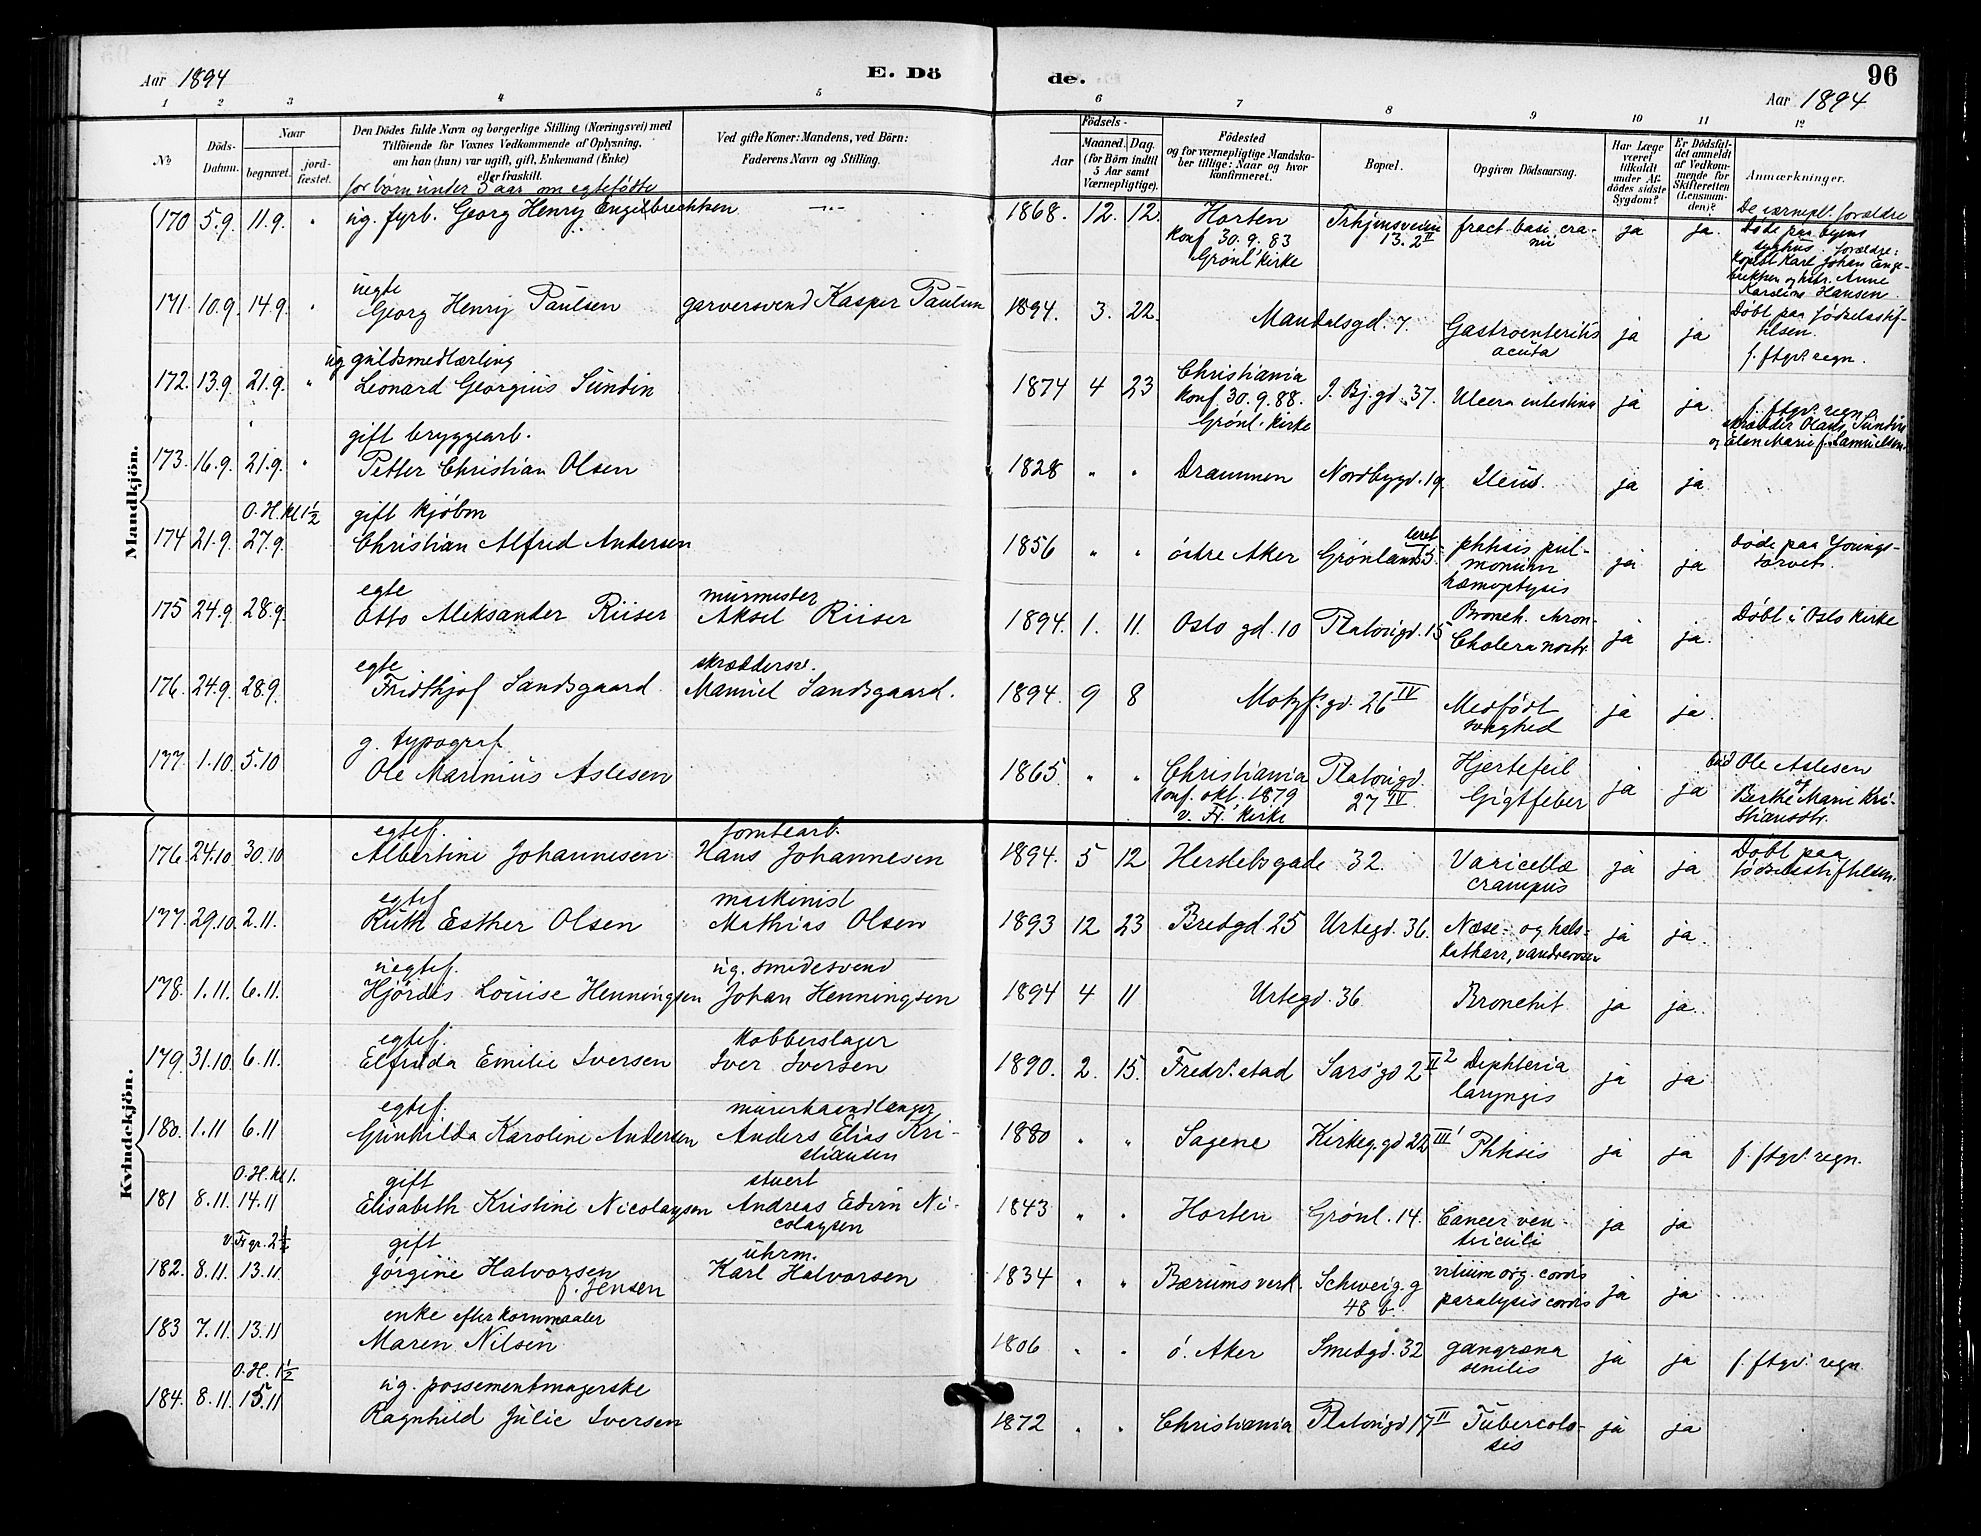 Aar 1894
E. Dö
de.
96
Aar 1894
1 2 3 4 5 6 7 8 9 10 11 12
№
Döds-Datum.
Naar
begravet.
jord-fæstet.
Den Dödes fulde Navn og borgerlige Stilling (Næringsvei) med
Tilföiende for Voxnes Vedkommende af Oplysning,
om han (hun) var ugift, gift, Enkemand (Enke)
eller fraskilt.
for börn under 5 aar om egtefödte
Ved gifte Koner: Mandens, ved Börn:
Faderens Navn og Stilling.
Födsels-
Aar
Maaned. Dag.
(for Börn indtil
5 Aar samt
Værnepligtige).
Födested
og for værnepligtige Mandska-
ber tillige: Naar og hvor
konfirmeret.
Bopæl.
Opgiven Dödsaarsag.
Har Læge
været
tilkaldt
under Af-
dödes sidste
Sygdom?
Er Dödsfal-
det anmeldt
af Vedkom-
mende for
Skifteretten
(Lensman-
den)?
Anmærkninger.
De værnepl. forældre
Mandkjön.
170 5.9. 11.9. " ug. fyrb. Georg Henry Engelbrechtsen —"— 1868. 12. 12. Horten
Konf. 30.9.83
Grönl. Kirke
Trhjemsveien
13.2 II
fract. basi cra-
nii
ja ja.
Döde paa byens
syghus. forældre:
Karl Johan Enge-
Anne
Karoline Hansen
171. 10.9. 14.9. " uegte
Georg Henry Paulsen garversvend Kasper Paulsen 1894. 3. 22. Mandalsgd. 7. Gastroenteritis
acuta
ja ja
Döbt paa Födselsstif-
telsen.
f. ftgv. regn.
172. 13.9. 21.9. " ug guldsmedlærling
Leonard Georgius Sundin 1874 4 23 Christiania
Konf. 30.9.88.
Grönl. Kirke
J. Bj. gd. 37. Ulcera intestina ja ja.
f. ftgv. regn.
skrædder Olaus Sundin
og Elen Marie f. Samuelsen
173. 16.9. 21.9. " gift bryggearb.
Petter Christian Olsen 1828 " " Drammen Nordbygd. 19 Ileus. ja ja
174 21.9. O.H. kl 1½
27.9. gift kjöbm
Christian Alfred Andersen 1856 " " östre Aker Grönlandsleret 5 phtisis pul-
monum
hæmoptysis
ja ja
döde paa Youngs-
torvet.
175 24.9. 28.9. egte
Otto Aleksander Riiser murmester
Aksel Riiser 1894. 1. 11. Oslo gd. 10 Platousgd. 15 Bronch. kron-
Cholera nostr.
ja ja. Döbt i Oslo kirke
176. 24.9. 28.9. egte
Fridthjof Sandsgaard. skræddersv.
Manuel Sandsgaard. 1894. 9 8 Motzf. gd. 26 IV Medfödt
svaghed
ja ja.
177. 1.10. 5.10 g. typograf
Ole Marinius Aslesen 1865. " " Christiania
konf. okt. 1879
v. Fr. kirke
Platousgd.
27 IV.
Hjertefeil
Gigtfeber
ja ja
Ole Aslesen
og
Berthe Marie Kri-
stiansdtr.
Kvindekjön.
176. 24.10 30.10 egtef.
Albertine Johannesen tomtearb.
Hans Johannesen 1894. 5 12 Herslebsgade 32. Varicellæ
crampus
ja ja
Döbt paa
födselsstiftelsen.
177. 29.10. 2.11. egtef
Ruth Esther Olsen maskinist
Mathias Olsen 1893 12 23 Bredgd. 25 Urtegd. 36. Næse- og hals-
katharr, vandrerosen
ja ja.
178. 1.11. 6.11. uegtef.
Hjördis Louise Henningsen ug. smedesvend
Johan Henningsen 1894 4 11 Urtegd. 36 Bronchit ja ja.
179. 31.10. 6.11. egtef.
Elfrida Emilie Iversen kobberslager
Iver Iversen 1890. 2. 15. Fredr.stad Sars' gd 2 II 2 Diphteria
laryngis
ja ja
180. 1.11 6.11 egtef.
Gunhilda Karoline Andersen murerhaandlanger
Anders Elias Kri-
stiansen
1880 " " Sagene Kirkeg. gd 22 III' Phtisis ja ja f. ftgv. regn.
181 8.11. O.H. kl 1.
14.11 gift
Elisabeth Kristine Nicolaysen stuert
Andreas Edvin Ni-
colaysen
1843 " " Horten Grönl. 14. Cancer ven-
triculi
ja ja
182. 8.11. V. Fr. gr. 2½
13.11 gift
Jörgine Halvorsen
f. Jensen
uhrm.
Karl Halvorsen 1834 " " Bærums verk. Schweig. g
48 b.
vitium org. cordis
paralysis cordis
ja ja
183 7.11. 13.11 enke efter kornmaaler
Maren Nilsen 1806 " " ö. Aker Smedgd. 32 gangræna
senilis
ja ja f. ftgv. regn.
184. 8.11. O.H. 1½
15.11 ug. possementmagerske
Ragnhild Julie Iversen 1872 " " Christiania Platousgd 17 II Tubercolo-
sis
ja ja